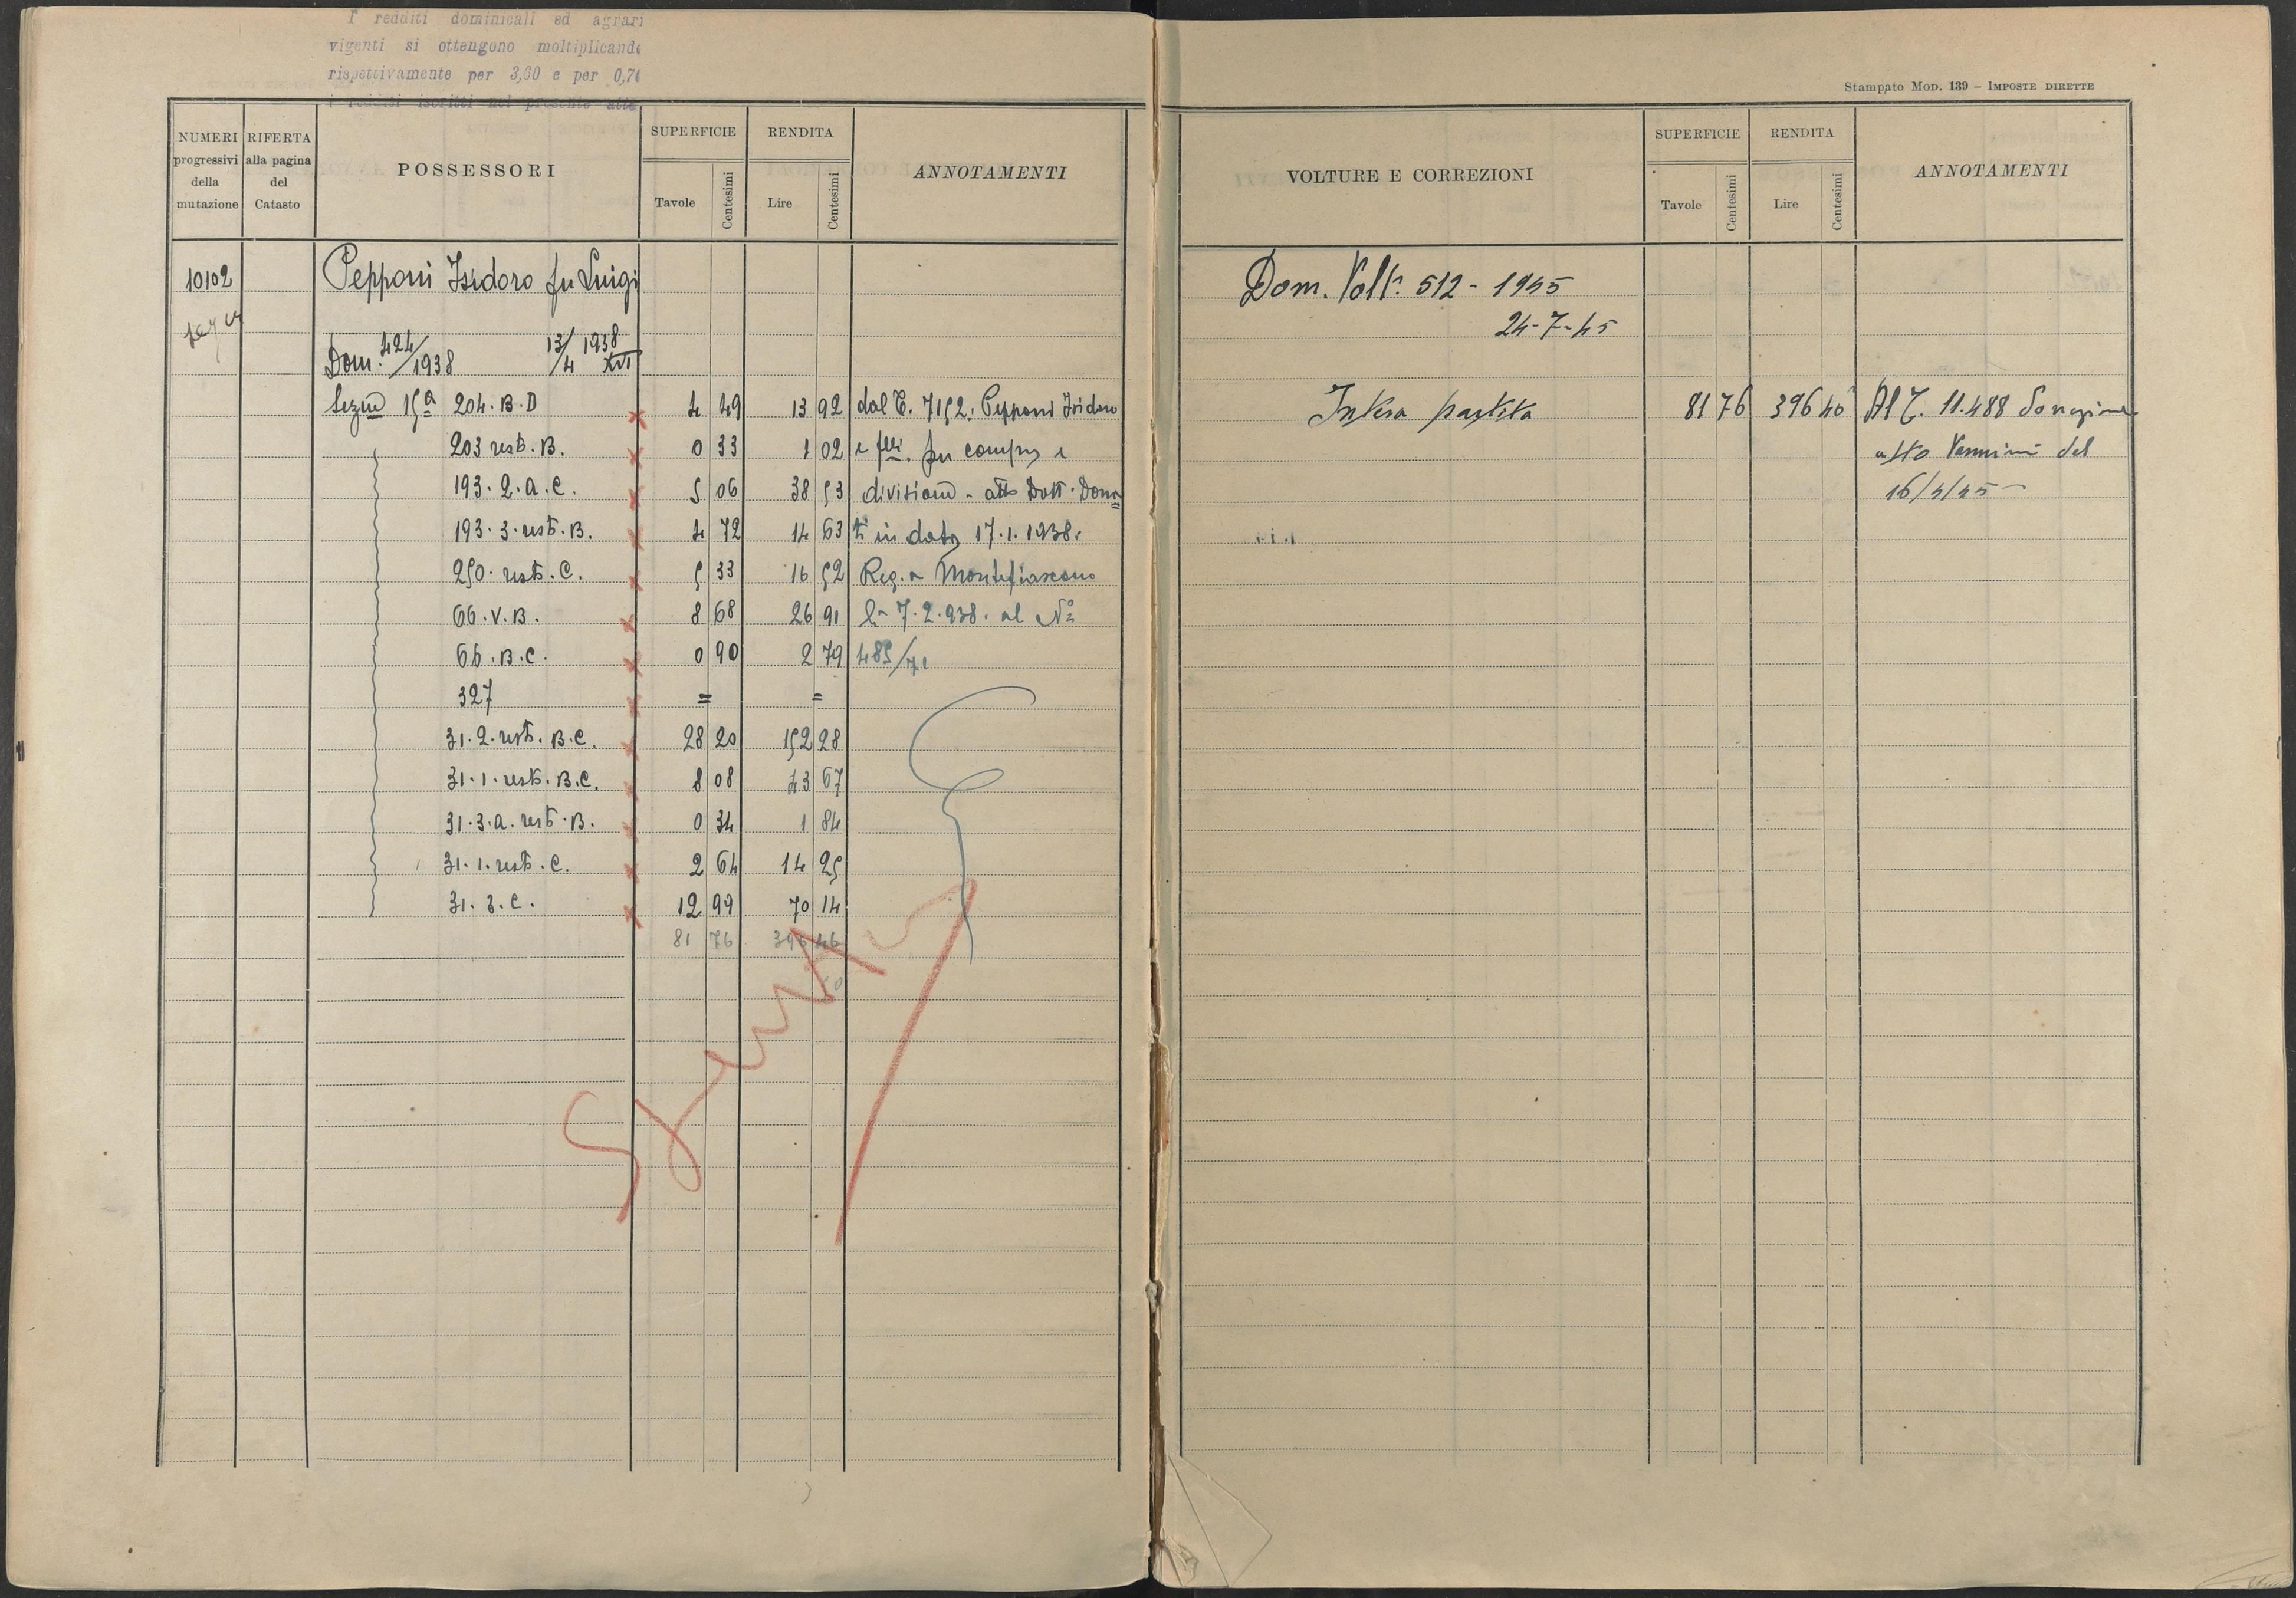 I redditi dominicali ed agrari
vigenti si ottengono moltiplicando
rispettivamente per 3,60 e per 0,7
i redditi iscritti nel presente atto
NUMERI progressivi della mutazione
RIFERTA alla pagina del Catasto
POSSESSORI
SUPERFICIE
Tavole Centesimi
RENDITA
Lire Centesimi
ANNOTAMENTI
10102 Pepponi Isidoro fu Luigi
Dom. 424/1938 13/4 1938 XVI
Sezne 15a 204. B. D 4 49 13 92 dal C. 7152. Pepponi Isidoro
203 rest. B. 0 33 1 02 e flli. per compra e
193. 2. a. C. 5 06 38 53 divisione - atto Dott. Dona=
193. 3. rest. B. 4 72 14 63 ti in data 17.1.1938.
250. rest. C. 5 33 16 52 Reg. a Montefiascone
66. V. B. 8 68 26 91 li 7.2.938. al No
66. B. C. 0 90 2 79 485/71
327 = =
31. 2. rest. B. C. 28 20 152 28
31. 1. rest. B. C. 8 08 43 67
31. 3. a. rest. B. 0 34 1 84
31. 1. rest. C. 2 64 14 25
31. 3. C. 12 99 70 14
81 76 396 46
Stampato MOD. 139 - IMPOSTE DIRETTE
VOLTURE E CORREZIONI
SUPERFICIE
Tavole Centesimi
RENDITA
Lire Centesimi
ANNOTAMENTI
Dom. Volt. 512 - 1945
24-7-45
Intera partita 81 76 396 40 Al C. 11.488 Donazione
atto Vannini del
16/4/45